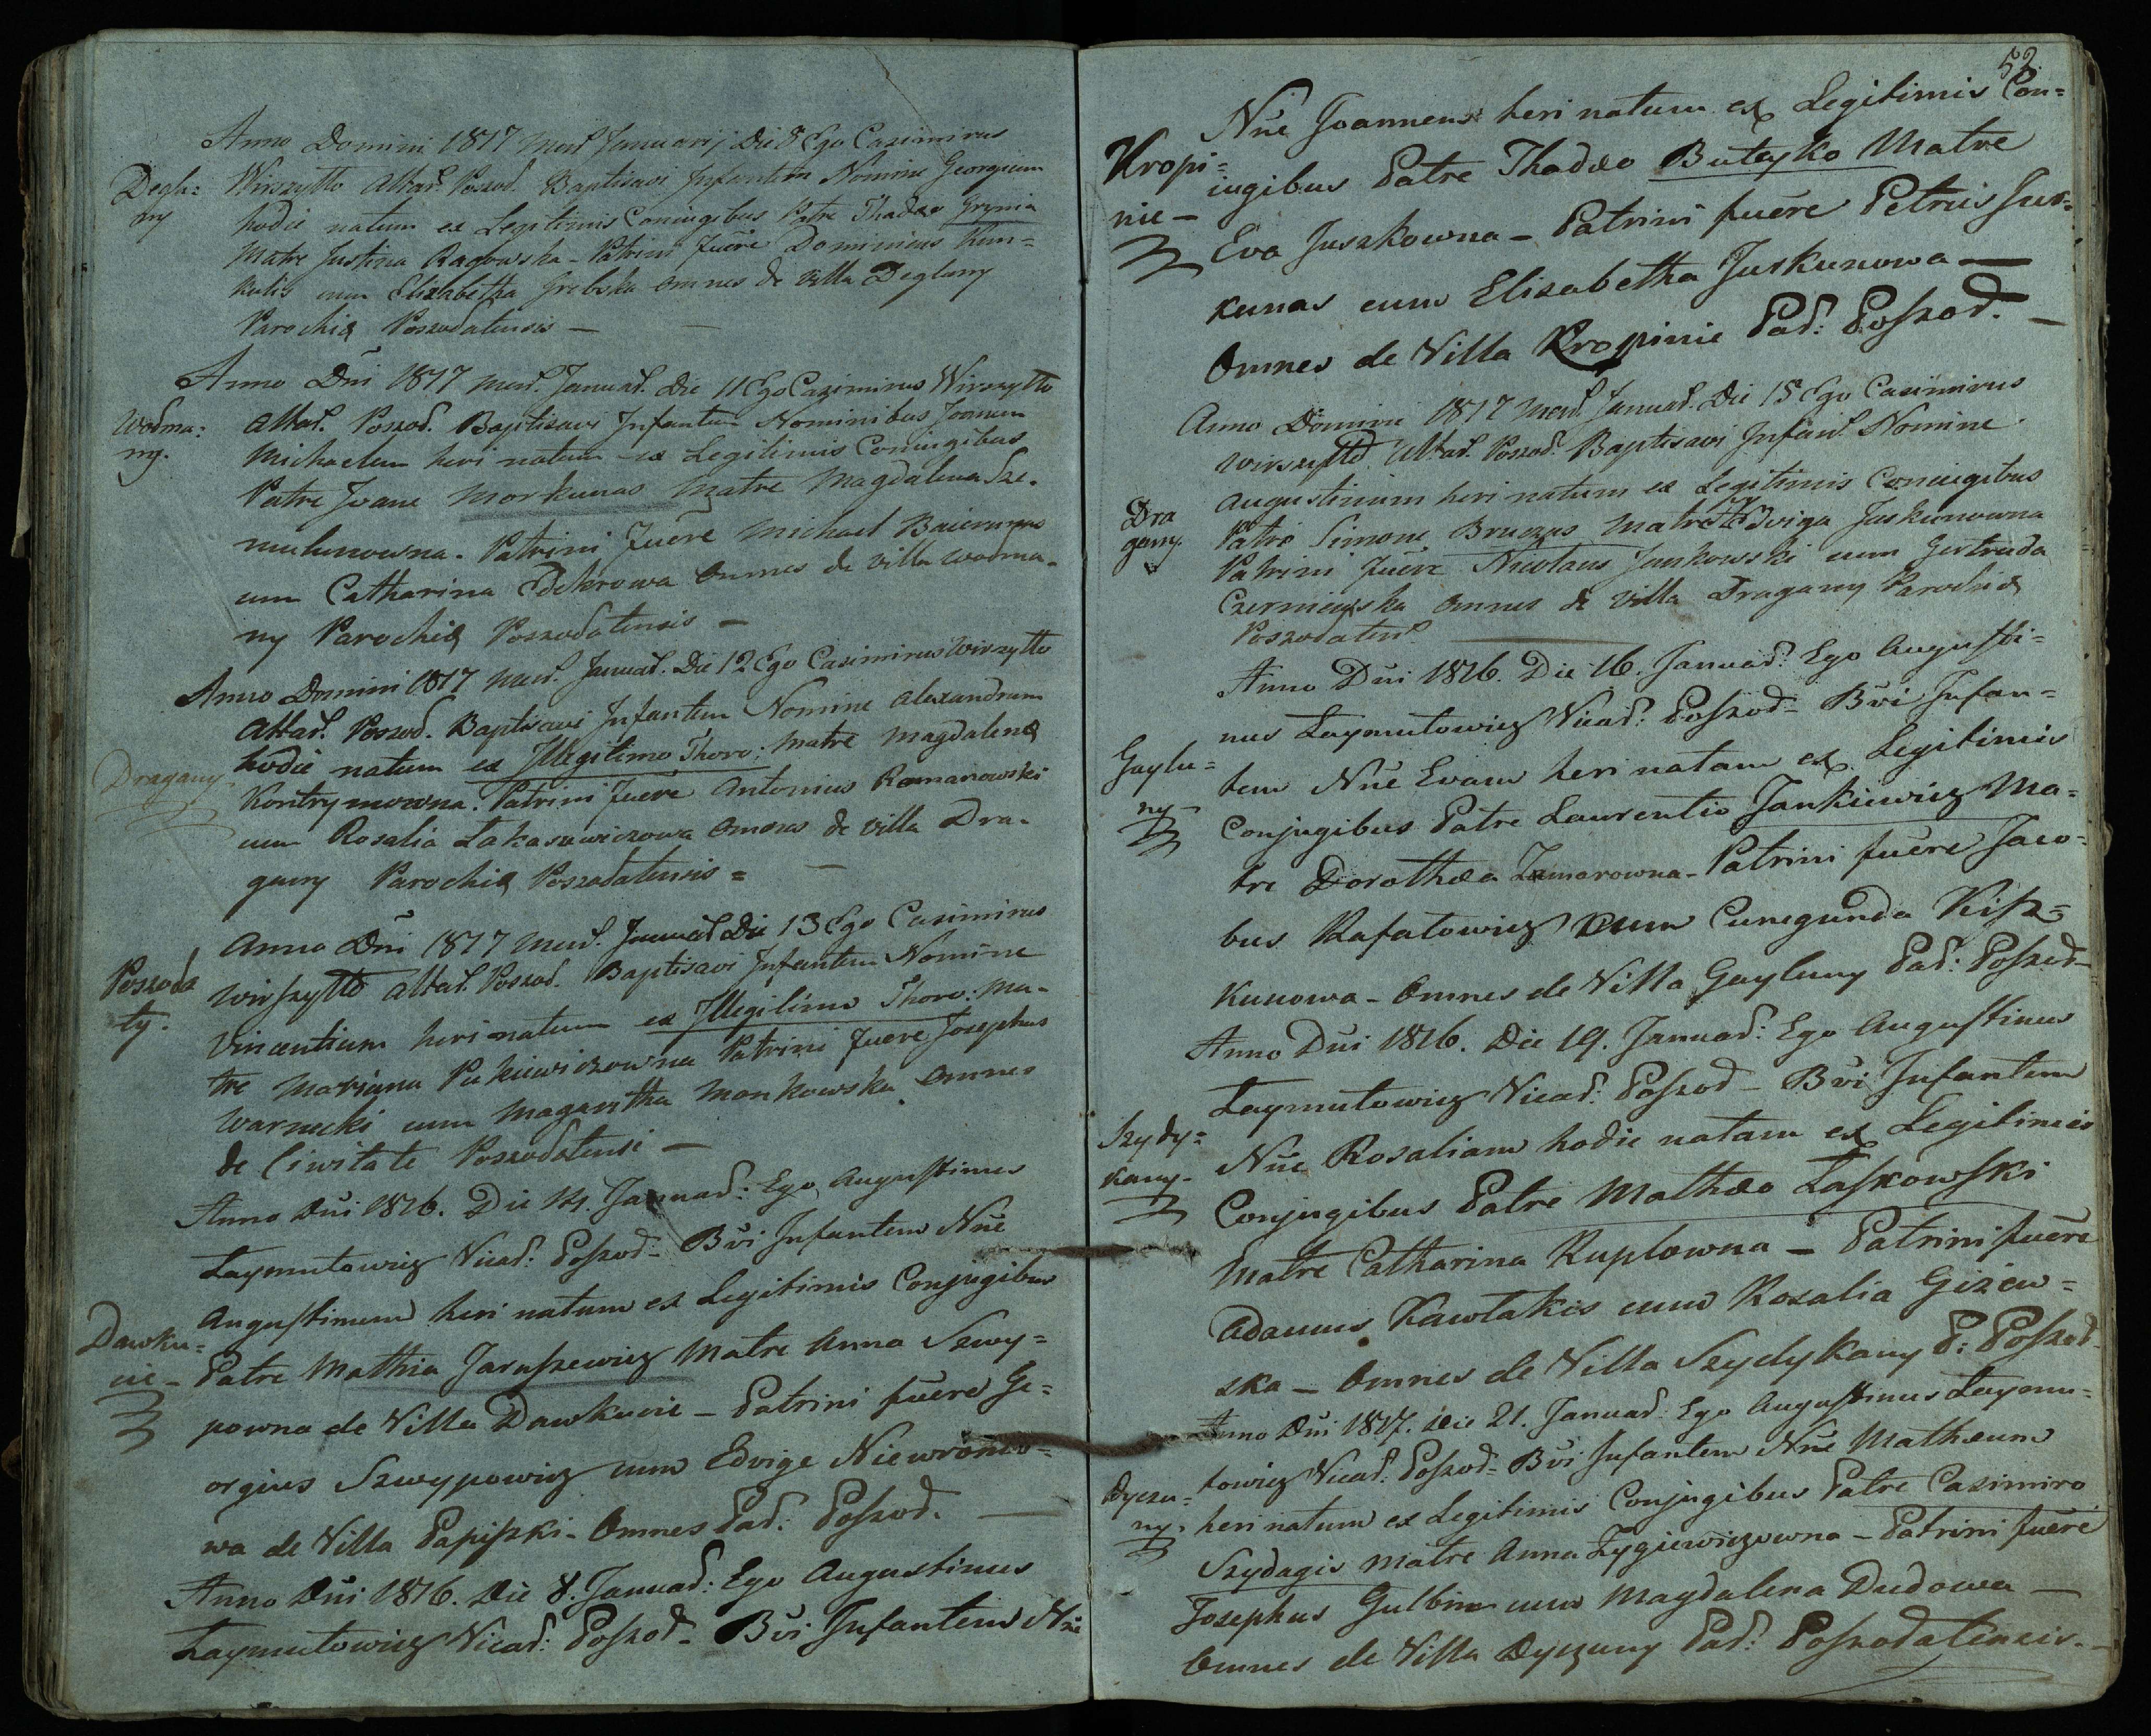 Anno Domini 1817 Mens. Januarij Die 8 Ego Casimirus
Deglu=
ny
Wirszyłło Altar. Poszod. Baptisavi Infantem Nomine Georgium
hodie natum ex Legitimis Coniugibus Patre Thadæo Grynia
Matre Justina Ragowska - Patrini fuere Dominicus Kun=
kulis cum Elizabetha Grebska omnes de villa Degluny
Parochiæ Poszodatensis -
Anno Dni 1817 Mens. Januar. Die 11 Ego Casimirus Wirszyłło
Wodma:
ny.
Altar. Poszod. Baptisavi Infantem Nominibus Joanem
Michaelem heri natum ex Legitimis Coniugibus
Patre Joane Morkunas Matre Magdalena Sze.
mulunowna. Patrini fuere Michael
cum Catharina omnes de villa Wodma-
ny Parochiæ Poszodatensis -
Anno Domini 1817 Mens. Januar. Die 12 Ego Casimirus Wirszyłło
Altar. Poszod. Baptisavi Infantem Nomine Alexandrum
Dragany
hodie natum ex Illegitimo Thoro: Matre Magdalenæ
Kontrymowna. Patrini fuere Antonius Romanowski
cum Rosalia Łakasawiczowa omnes de villa Dra-
gany Parochiæ Poszodatensis =
Anno Dni 1817 Mens. Januar Die 13 Ego Casimirus
Poszoda
ty.
Wirszyłło Altar. Poszod. Baptisavi Infantem Nomine
Vincentium heri natum ex Illegitimo Thoro: Ma-
tre Mariana Pukiewiczowna Patrini fuere Josephus
Warnecki cum Magaretha Monkowska omnes
de Civitate Poszodatensi -
Anno Dni 1816. Die 14. Januar: Ego Augustinus
Laymutowicz Vicar: Poszod- Bvi Infantem Nne
Augustinum heri natum ex Legitimis Conjugibus
Dawku=
cie-
Patre Mathia Jaruszewicz Matre Anna Szwy=
powna de Villa Dawkucie - Patrini fuere Ge=
orgius Szweypowicz cum Edvige Niewronio=
wa de Villa Papiszki- Omnes Par: Poszod.
Anno Dni 1816. Die 8. Januar: Ego Augustinus
Laymutowicz Vicar: Poszod- Bvi Infantem Nne
52.
Nne Joannem heri natum ex Legitimis Con=
Kropi=
nie-
iugibus Patre Thadæo Buteyko Matre
Eva Juszkowna - Patrini fuere Petrus Jus=
kunas cum Elisabetha Juskunowa -
Omnes de Villa Kropinie Par: Poszod. -
Anno Domini 1817 Mens. Januar. Die 15 Ego Casimirus
Wirszyłło Altar. Poszod. Baptisavi Infan. Nomine
Dra
gany.
Augustinum heri natum ex Legitimis Coniugibus
Patre Simone Bruzas Matre Edviga Juskunowna
Patrini fuere Nicolaus Jankowski cum Gertruda
Czerniewska omnes de villa Dragany Parochiæ
Poszodaten
Anno Dni 1816. Die 16. Januar: Ego Augusti=
nus Laymutowicz Vicar: Poszod- Bvi Infan=
Gaylu=
ny-
tem Nne Evam heri natam ex Legitimis
Conjugibus Patre Laurentio Jankiewicz Ma=
tre Dorothæa Zamarowna- Patrini fuere Jaco=
bus Rafałowicz cum Cunegunda Kisz=
kunowa - Omnes de Villa Gayluny Par: Poszod-
Anno Dni 1816. Die 19. Januar: Ego Augustinus
Laymutowicz Vicar: Poszod- Bvi Infantem
Szydy=
kany-
Nne Rosaliam hodie natam ex Legitimis
Conjugibus Patre Mathæo Laskowski
Matre Catharina Ruplowna - Patrini fuere
Adamus Kawłakis cum Rosalia Gizew=
ska - Omnes de Villa Szydykany P: Poszod-
Anno Dni 1817. Die 21. Januar: Ego Augustinus Laymu=
Dyczu=
ny.
towicz Vicar: Poszod= Bvi Infantem Nne Mathæum
heri natum ex Legitimis Conjugibus Patre Casimiro
Szydagis Matre Anna Zygiewiczowna - Patrini fuere
Josephus Gulbin cum Magdalena Dudowa -
Omnes de Villa Dyczuny Par: Poszodatensis. -